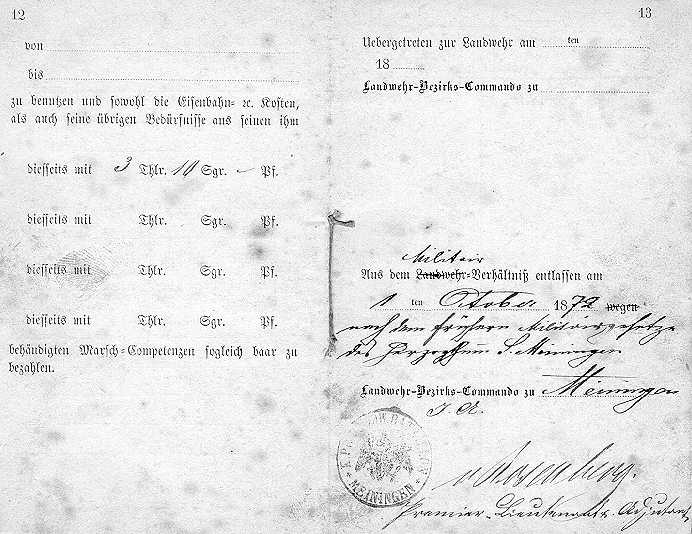 12
von
bis
zu benutzen und sowohl die Eisenbahn- ꝛc. Kosten,
als auch seine übrigen Bedürfnisse aus seinen ihm
diesseits mit 3 Thlr. 10 Sgr. - Pf.
diesseits mit Thlr. Sgr. Pf.
diesseits mit Thlr. Sgr. Pf.
diesseits mit Thlr. Sgr. Pf.
behändigten Marsch-Competenzen sogleich baar zu
bezahlen.
13
Uebergetreten zur Landwehr am ten
18
Landwehr-Bezirks-Commando zu
Militair
Aus dem Landwehr-Verhältniß entlassen am
1 ten October 1872 wegen
nach dem frühern Militairgesetze
des Herzogthum S. Meiningen
Landwehr-Bezirks-Commando zu Meiningen
I. A.
MEININGEN
v Rosenberg.
Premier-Lieutenant u. Adjutant